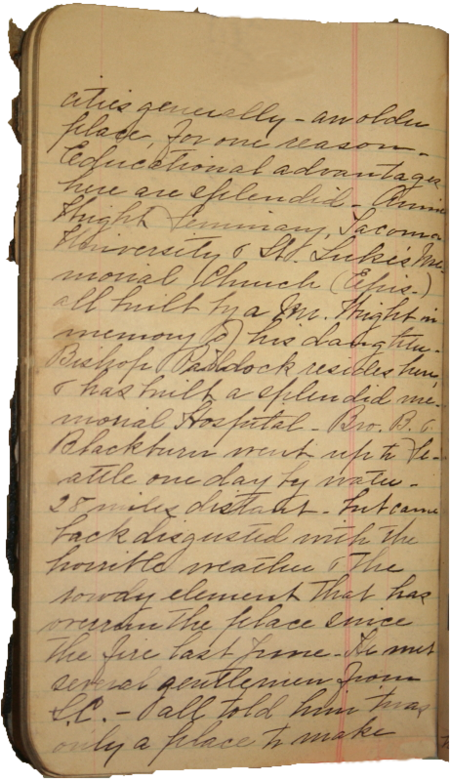 cities generally - an older
place, for one reason -
Educational advantages
here are splendid - Annie
Wright Seminary, Tacoma
University & St. Luke's Me-
morial Church (Epis.)
all built by a Mr. Wright in
memory of his daughter -
Bishop Paddock resides here,
& has built a splendid me-
morial Hospital - Bro. B. &
Blackburn went up to Se-
attle one day by water -
28 miles distant - but came
back disgusted with the
horrible weather & the
rowdy element that has
overrun the place since
the fire last June - He met
several gentlemen from
S.C. - & all told him twas
only a place to make